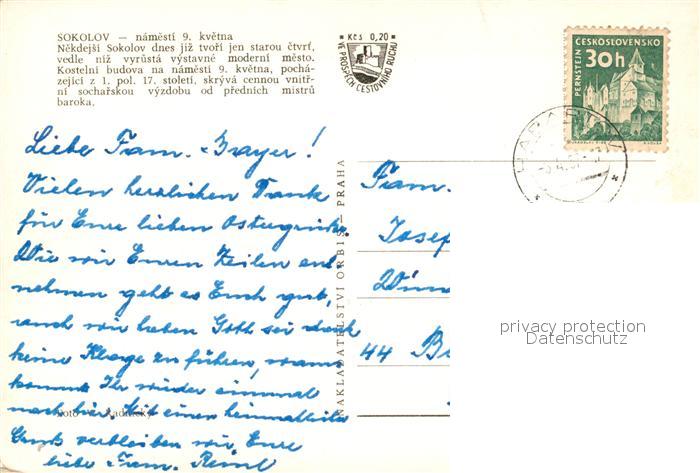 SOKOLOV — náměstí 9. května
Někdejší Sokolov dnes již tvoří jen starou čtvrť,
vedle níž vyrůstá výstavné moderní město.
Kostelní budova na náměstí 9. května, pochá-
zející z 1. pol. 17. století, skrývá cennou vnitř-
ní sochařskou výzdobu od předních mistrů
baroka.
Kčs 0,20
VE PROSPĚCH CESTOVNÍHO RUCHU
ČESKOSLOVENSKO
PERNŠTEJN
30h
Liebe Fam. Bayer!
Vielen herzlichen Dank
für Eure lieben Ostergrüße.
Wie wir Euren Zeilen ent-
nehmen geht es Euch gut,
auch wir haben Goth sei dank
keine Klage zu führen, wann
kommt Ihr wieder einmal
nach hir. Mit einen heimatlichen
Gruß verbleiben wir, Eure
liebe Fam.
Foto
NAKLADATELSTVÍ ORBIS — PRAHA
Fam.
Josef
44 B
privacy protection
Datenschutz